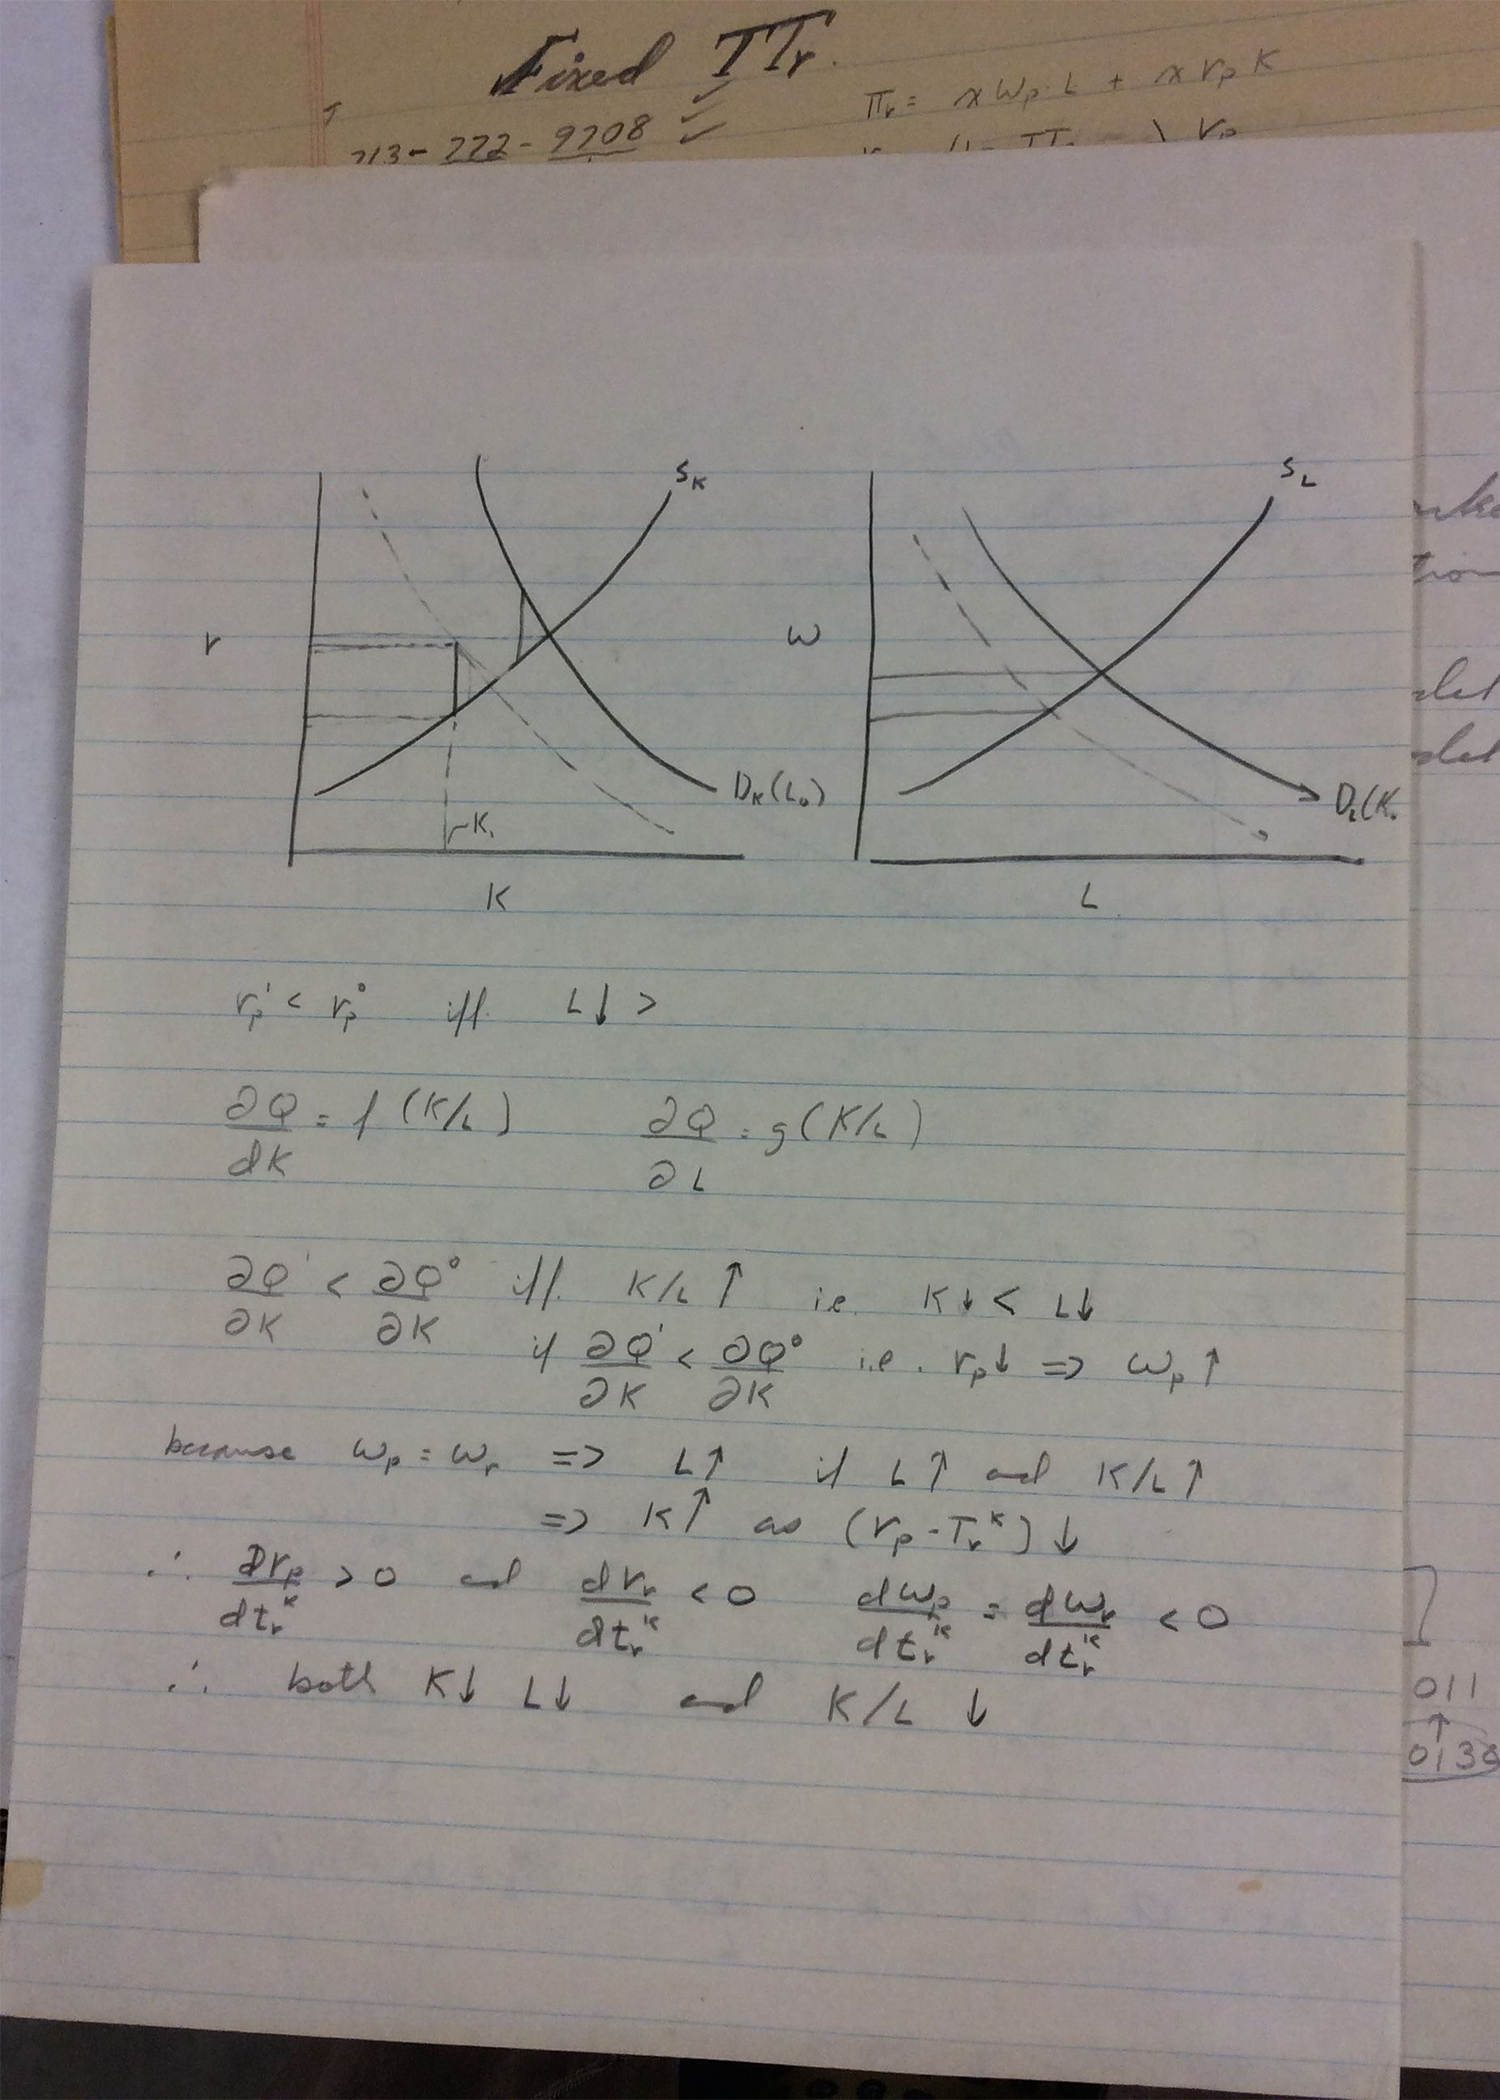 Fixed TTr.
713-772-9708 ✓ ✓
πr = x wp · L + x rp K
r
SK
DK(L0)
K1
K
w
SL
DL(K0
L
rp' < rp° iff L↓ >
∂Q/dK = f (K/L) ∂Q/∂L = g (K/L)
∂Q'/∂K < ∂Q°/∂K iff. K/L ↑ i.e. K↓ < L↓
if ∂Q'/∂K < ∂Q°/∂K i.e. rp↓ => wp↑
because wp = wr => L↑ if L↑ and K/L↑
=> K↑ as (rp - Tr^K) ↓
∴ drp/dtr^K > 0 and drr/dtr^K < 0 dwp/dtr^K = dwr/dtr^K < 0
∴ both K↓ L↓ and K/L ↓
011
↑
0130